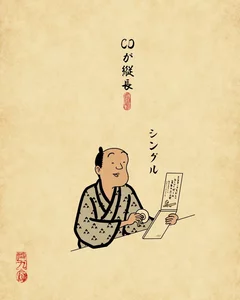 CDが縦長
シングル